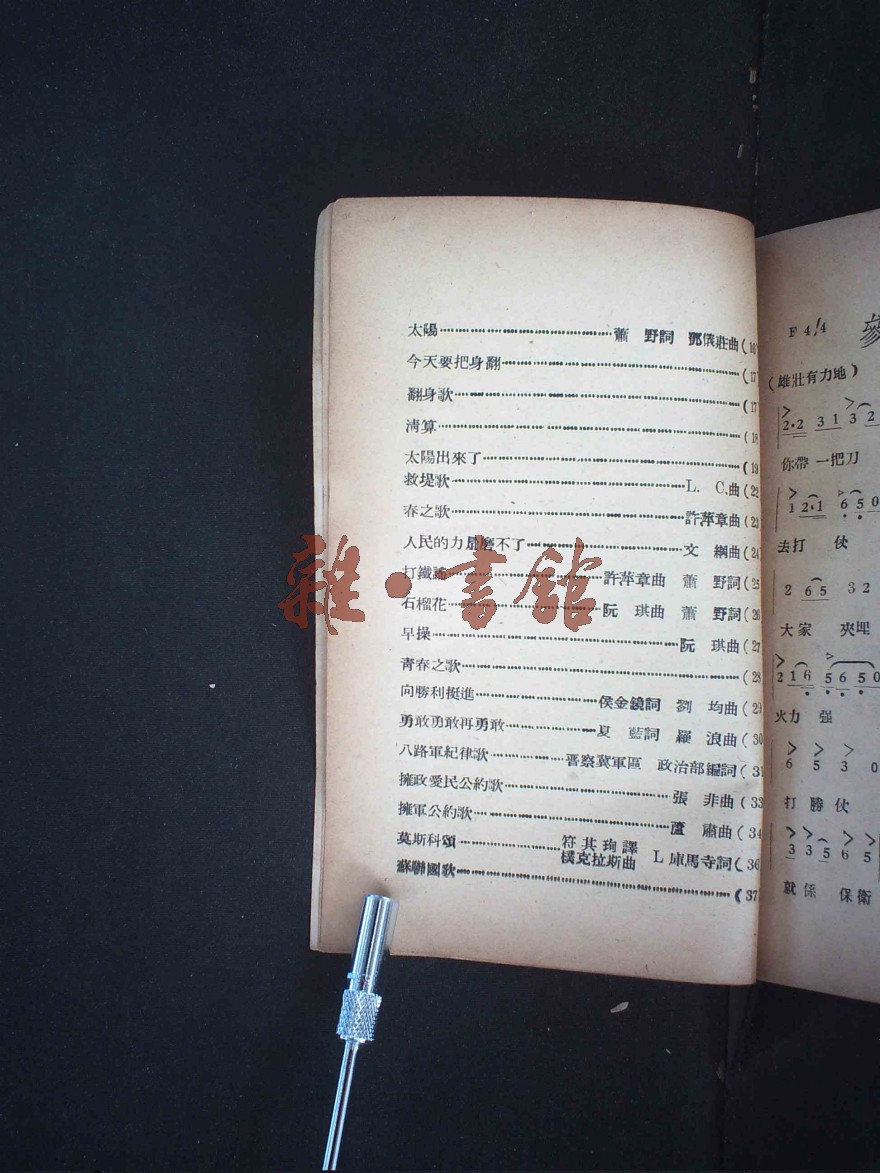 太陽⋯⋯⋯蕭 野詞 鄧儀莊曲(16
今天要把身翻⋯⋯⋯(17
翻身歌⋯⋯⋯(17
淸算⋯⋯⋯(18
太陽出來了⋯⋯⋯(19
救堤歌⋯⋯⋯L. C.曲(22
春之歌⋯⋯⋯許萍章曲(23
人民的力量磨不了⋯⋯⋯文 綱曲(24
打鐵謠⋯⋯⋯許萍章曲 蕭 野詞(25
石榴花⋯⋯⋯阮 琪曲 蕭 野詞(26
早操⋯⋯⋯阮 琪曲(27
靑春之歌⋯⋯⋯(28
向勝利挺進⋯⋯⋯侯金鏡詞 劉 均曲(29
勇敢勇敢再勇敢⋯⋯⋯夏 藍詞 羅 浪曲(30
八路軍紀律歌⋯⋯⋯晋察冀軍區 政治部編詞(31
擁政愛民公約歌⋯⋯⋯張 非曲(33
擁軍公約歌⋯⋯⋯蘆 肅曲(34
莫斯科頌⋯⋯⋯符其珣譯
樸克拉斯曲 L庫馬寺詞(36
蘇聯國歌⋯⋯⋯(37
雜·書館
F 4/4
(雄壯有力地)
2·2 3 1 3 2
你帶一把刀
1 2·1 6 5 0
去打 伙
2 6 5 3 2
大家 夾埋
2 1 6 5 6 5 0
火力 强
6 5 3 0
打勝伙
3 3 5 6 5
就係 保衛